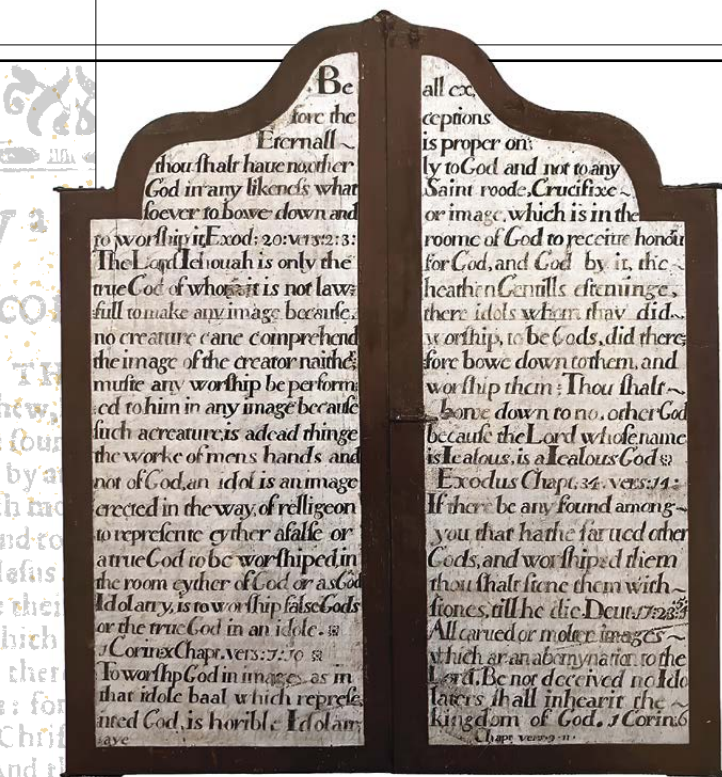 Be
fore the
Eternall ~
thou shalt haue no,other
God in any likenes what
soever to bowe down and
to worship it,Exod: 20:vers:2:3:
The Lord Iehouah is only the
true God of whom it is not law:
full to make any image because,
no creature cane comprehend
the image of the creator naithe:
muste any worship be perform:
:ed to him in any image because
such acreature,is adead thinge
the worke of mens hands and
not of God,an idol is an image
erected in the way,of relligeon
to represente eyther afalse or
atrue God to be worshiped,in
the room eyther of God or as God
Idolatry,is to worship false Gods
or the true God in an idole.
1 Corin:x Chapt.vers:7:10
To worshp God in images as in
that idole baal which represe:
:nted God,is horible Idolatr
aye
all ex,
ceptions
is proper on:
ly to God and not to any
Saint roode,Crucifixe ~
or image,which is in the
roome of God to receiue honour
for God,and God by it, the ~
heathen Gentills esteninge,
there idols whom thay did ~
worship, to be Gods, did there;
fore bowe down to them, and
worship them: Thou shalt ~
bowe down to no,other God
because the Lord whose name
is Iealous,is a Iealous God
Exodus Chapt,34.vers:14:
If there be any found among ~
you that hathe sarued other
Gods, and worshiped them
thou shalt stone them with ~
stones,till he die.Deut:17:
All carued or molten images ~
which ar an abomynation to the
Lord,Be not deceived no Ido
laters shall inhearit the ~
kingdom of God. 1 Corin:6
Chapt vers:9-11
TH
hew,
by at
nd to
hich
there
: for
Chris
And th